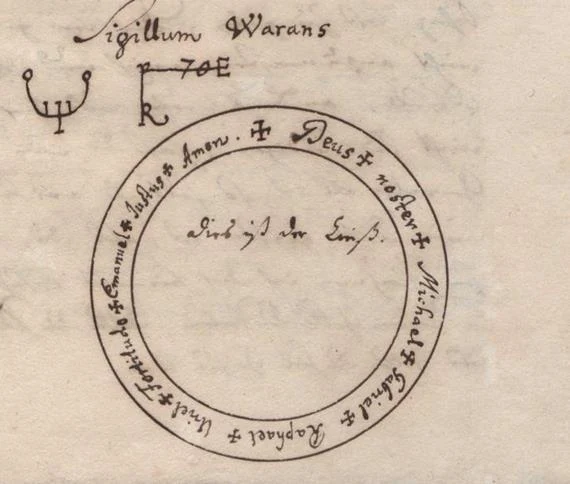 Sigillum Warans
P 70E
R
✠ Deus ✠ noster ✠ Michael ✠ Gabriel ✠ Raphael ✠ Uriel ✠ Fortitudo ✠ Emanuel ✠ Justus ✠ Amen.
dies ist der Creiß.